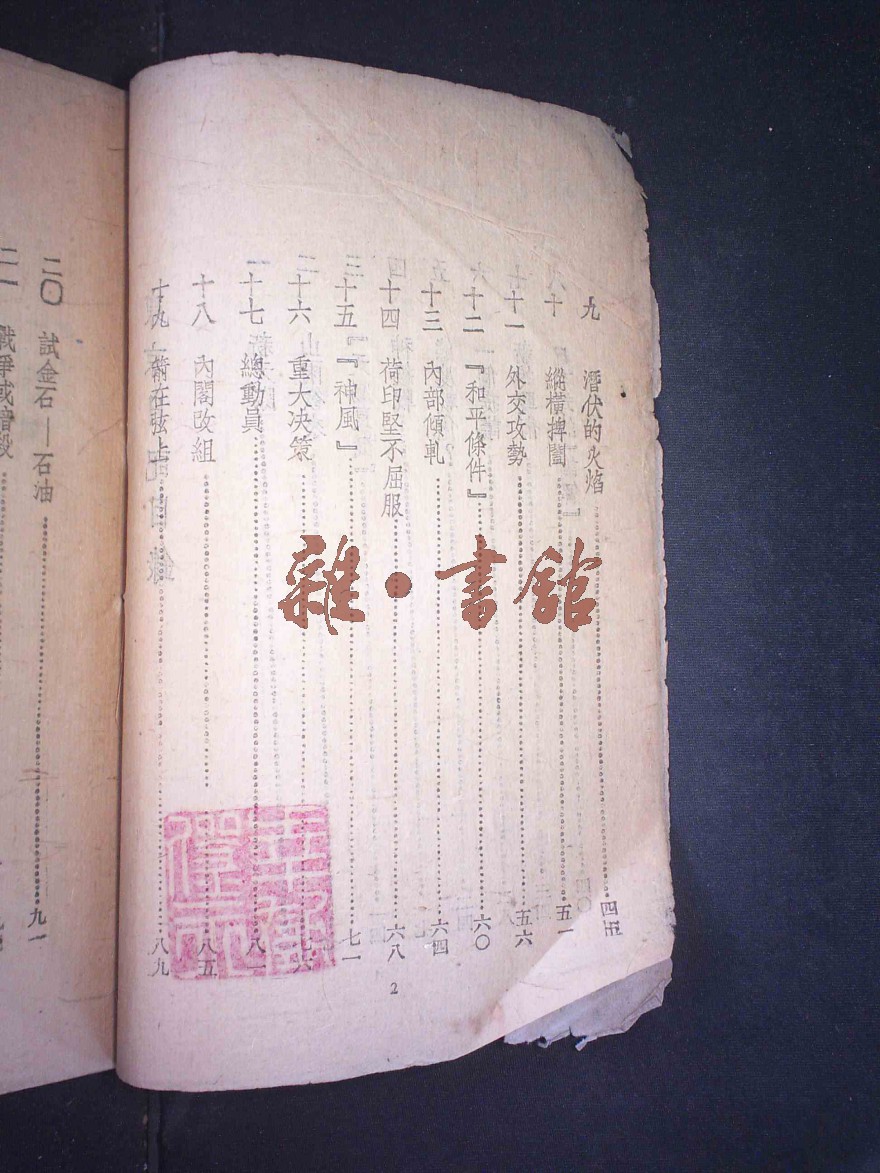 九 潛伏的火焰 四五
十 縱橫捭闔 五一
十一 外交攻勢 五六
十二 『和平條件』 六〇
十三 內部傾軋 六四
十四 荷印堅不屈服 六八
十五 『神風』 七一
十六 重大决策 七六
十七 總動員 八一
十八 內閣改組 八五
十九 箭在弦上 八九
2
二〇 試金石—石油 九一
二一 戰爭或暗殺
雜·書館